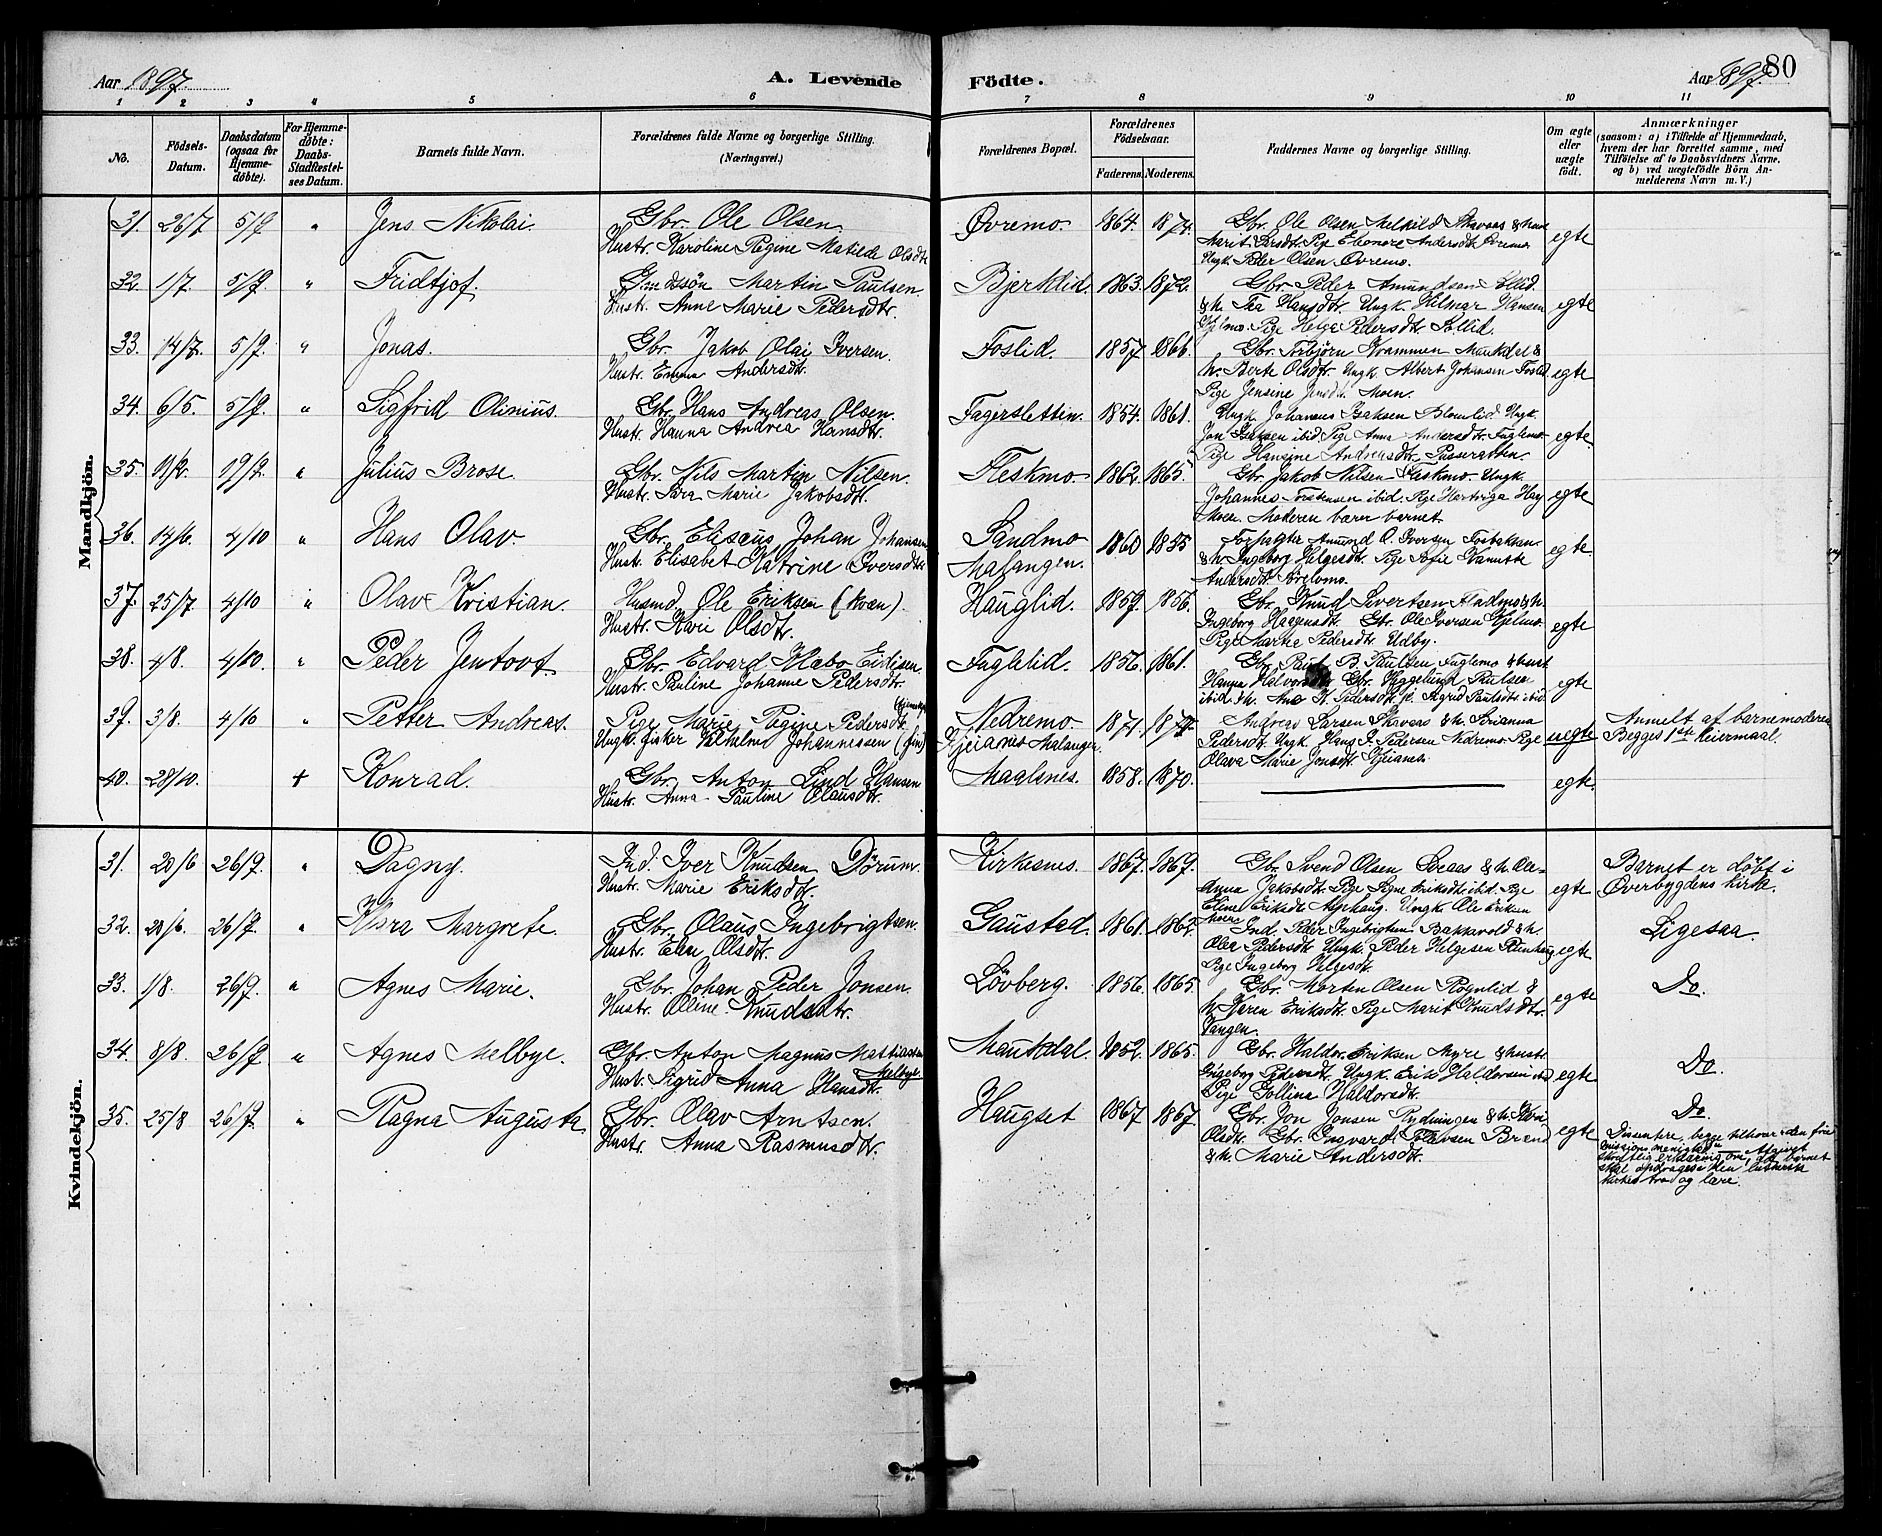 Aar 1897. A. Levende Födte. Aar 1897. 80
1 2 3 4 5 6 7 8 9 10 11
No. Födsels-Datum. Daabsdatum (ogsaa for Hjemmedøbte). For Hjemmedöbte: Daabs-Stadfæstelses Datum. Barnets fulde Navn. Forældrenes fulde Navne og borgerlige Stilling. (Næringsvei.) Forældrenes Bopæl. Forældrenes Födselsaar. Faderens. Moderens. Faddernes Navne og borgerlige Stilling. Om ægte eller uægte födt. Anmærkninger (saasom: a) i Tilfælde af Hjemmedaab, hvem der har forrettet samme, med Tilföielse af to Daabsvidners Navne, og b) ved uægtefödte Börn Anmelderens Navn m. V.)
Mandkjön.
31. 26/7 5/9 " Jens Nikolai. Gbr. Ole Olsen. Øvremo. 1864. 1874. Gbr. Ole Olsen Melkild
Hustr. Karoline Regine Matilde Olsdtr Marit Larsdtr. Pige Elenore Andersdtr. Øvremo. egte
Ungk. Peder Olsen Øvremo.
32. 1/7 5/9. " Fridtjof. Martin Paulsen. Bjerklid. 1863. 1872. Gbr. Peder Amundsen
Hustr. Anne Marie Pedersdtr. & h. Tea Hansdtr. Ungk. Hilmar Hansen egte
Pige Helga Pedersdtr.
33. 14/7. 5/9. " Jonas. Gbr. Jakob Olai Iversen. Foslid. 1857. 1866. Gbr. Torbjörn
Hustr. Emma Andersdtr. h. Berte Olsdtr. Ungk. Albert Johansen egte
Pige Jensine Moen.
34. 6/5. 5/9. " Sigfrid Olinius. Gbr. Hans Andreas Olsen. Fagerslettin. 1854. 1861. Ungk. Johannes Isaksen Blomlid. Ungk.
Hustr. Hanna Andrea Hansdtr. Jon Isaksen ibid. Pige Anna Andersdtr. Fuglemo egte
Pige Hansine
35. 11/2. 19/9. " Julius Brose. Gbr. Nils Martin Nilsen. Fleskmo. 1862. 1865. Gbr. Jakob Nilsen Fleskmo. Ungk.
Hustr. Sara Marie Jakobsdtr. Johannes Torstensen ibid. Pige egte
Moen. Moderen bærer barnet.
36. 14/6. 4/10 " Hans Olav. Gbr. Eliseus Johan Johansen Sandmo 1860 1855
Hustr. Elisabet Katrine Iversdtr Malangen. & h. Ingeborg Helgesdtr. Pige Sofie egte
Andersdtr.
37. 25/7 4/10 " Olav Kristian. Husmd. Ole Eriksen (kvæn). Hauglid. 1859. 1856. Gbr. Knud Sivertsen
Hustr. Kari Olsdtr. Ingeborg Haagensdtr. Gbr. Ole Iversen egte
Pige Martha Pedersdtr. Udby.
38. 4/8. 4/10. " Peder Jentovt. Gbr. Edvard Hæbo Fuglelid. 1856. 1861. Gbr. Paul B. Paulsen Fuglemo
Hustr. Pauline Johanne Pedersdtr. Hanna Halvorsdtr Gbr. egte
ibid & h. Ane K. Pedersdtr.
39. 3/8. 4/10 " Petter Andreas. Pige Marie Regine Pedersdtr. Nedremo 1871. 1874. Andreas Larsen & h. Arianna Anmelt af barnemoderen
Ungk. fisker Vilhelm Johannessen (fin) Malangen. Pedersdtr. Ungk. Hans P. Pedersen Nedremo. Pige uegte Begges 1ste leiermaal.
Olava Marie Jonsdtr.
40. 28/10. + Konrad. Gbr. Anton Lind Hansen Maalsnes. 1858. 1870. egte.
Hustr. Anna Pauline Olausdtr.
Kvindekjön.
31. 20/6 26/9. " Dagny. Ind. Iver Knudsen Dörum. Kirkesnes. 1867. 1869. Gbr. Svend Olsen & h. Ole- Barnet er døbt i
Hustr. Marie Eriksdtr. Anna Jakobsdtr. Pige Signe Eriksdtr. ibid. Pige egte Øverbygdens kirke.
Eline Eriksdtr. Ungk. Ole Eriksen
32. 20/6. 26/9. " Kjara Margrete. Gbr. Olaus Ingebrigtsen Gaustad. 1861. 1862. Ind. Peder Ingebrigtsen Bakkevold & h. Ligesaa.
Hustr. Elen Olsdtr. Olea Pedersdtr. Ungk. Peder Helgesen egte
Pige Ingeborg Helgesdtr.
33. 1/8. 26/9. " Agnes Marie. Gbr. Johan Peder Jonsen. Lövberg. 1856. 1865. Gbr. Morten Olsen Rognlid & Do.
Hustr. Oline Knudsdtr. h. Karen Eriksdtr. Pige Marit Knudsdtr. egte
Vangen.
34. 8/8. 26/9 " Agnes Melbye. Gbr. Anton Magnus Mattiassen Maukdal. 1852. 1865. Gbr. Haldor Eriksen Myre & hustr. Do.
Melbye. Hustr. Sigrid Anna Hansdtr. Ingeborg Pedersdtr. Ungk. Erik Haldorsen ibid egte
Pige Gollina Haldorsdtr.
35. 25/8 26/9. " Ragna Augusta Gbr. Olav Arntsen. Haugset 1867 1867. Gbr. Jon Jonsen Rydningen & h. Do.
Hustr. Anna Rasmusdtr. Olsdtr. Gbr. Ingvard Brend egte Dissentere, begge tilhører den frie
& h. Marie Andersdtr. missions menighed. Afgivet
skriftlig erklæring om, at barnet
skal opdrages i den lutherske
kirkes tro og lære.